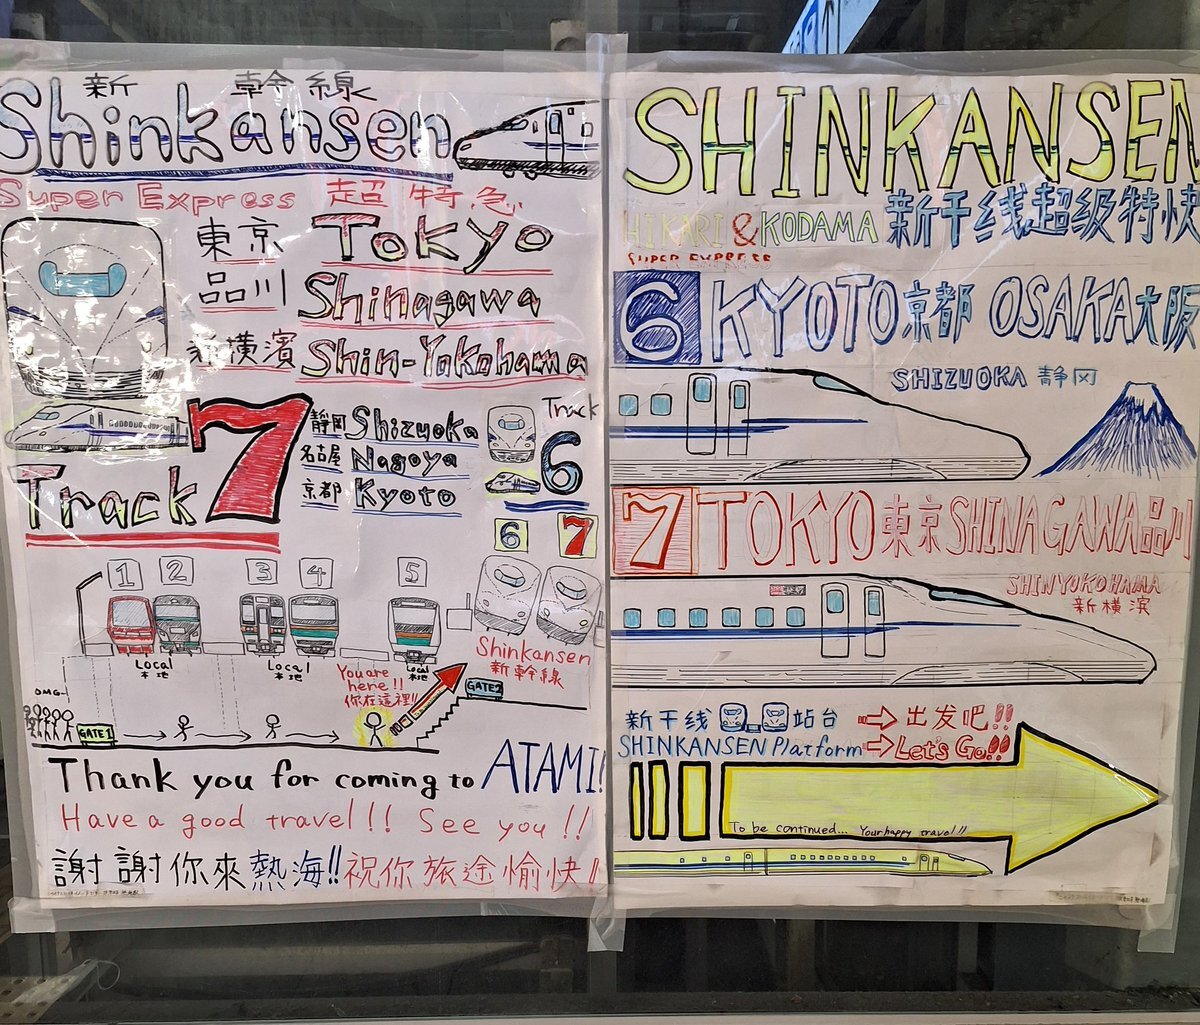 新幹線
Shinkansen
Super Express 超特急
東京 Tokyo
品川 Shinagawa
新横濱 Shin-Yokohama
Track 7
静岡 Shizuoka
名古屋 Nagoya
京都 Kyoto
Track
6
6 7
1 2 3 4 5
Local
本地
Local
本地
Local
本地
Shinkansen
新幹線
You are
here!!
你在這裡!!
OMG~
GATE1
GATE2
Thank you for coming to ATAMI!
Have a good travel!! See you!!
謝謝你來熱海!!祝你旅途愉快!!
SHINKANSEN
HIKARI & KODAMA 新干线超级特快
SUPER EXPRESS
6 KYOTO京都 OSAKA大阪
SHIZUOKA 静冈
7 TOKYO東京SHINAGAWA品川
SHINYOKOHAMA
新横滨
新干线 站台 出发吧!!
SHINKANSEN Platform Let's Go!!
To be continued... Your happy travel!!